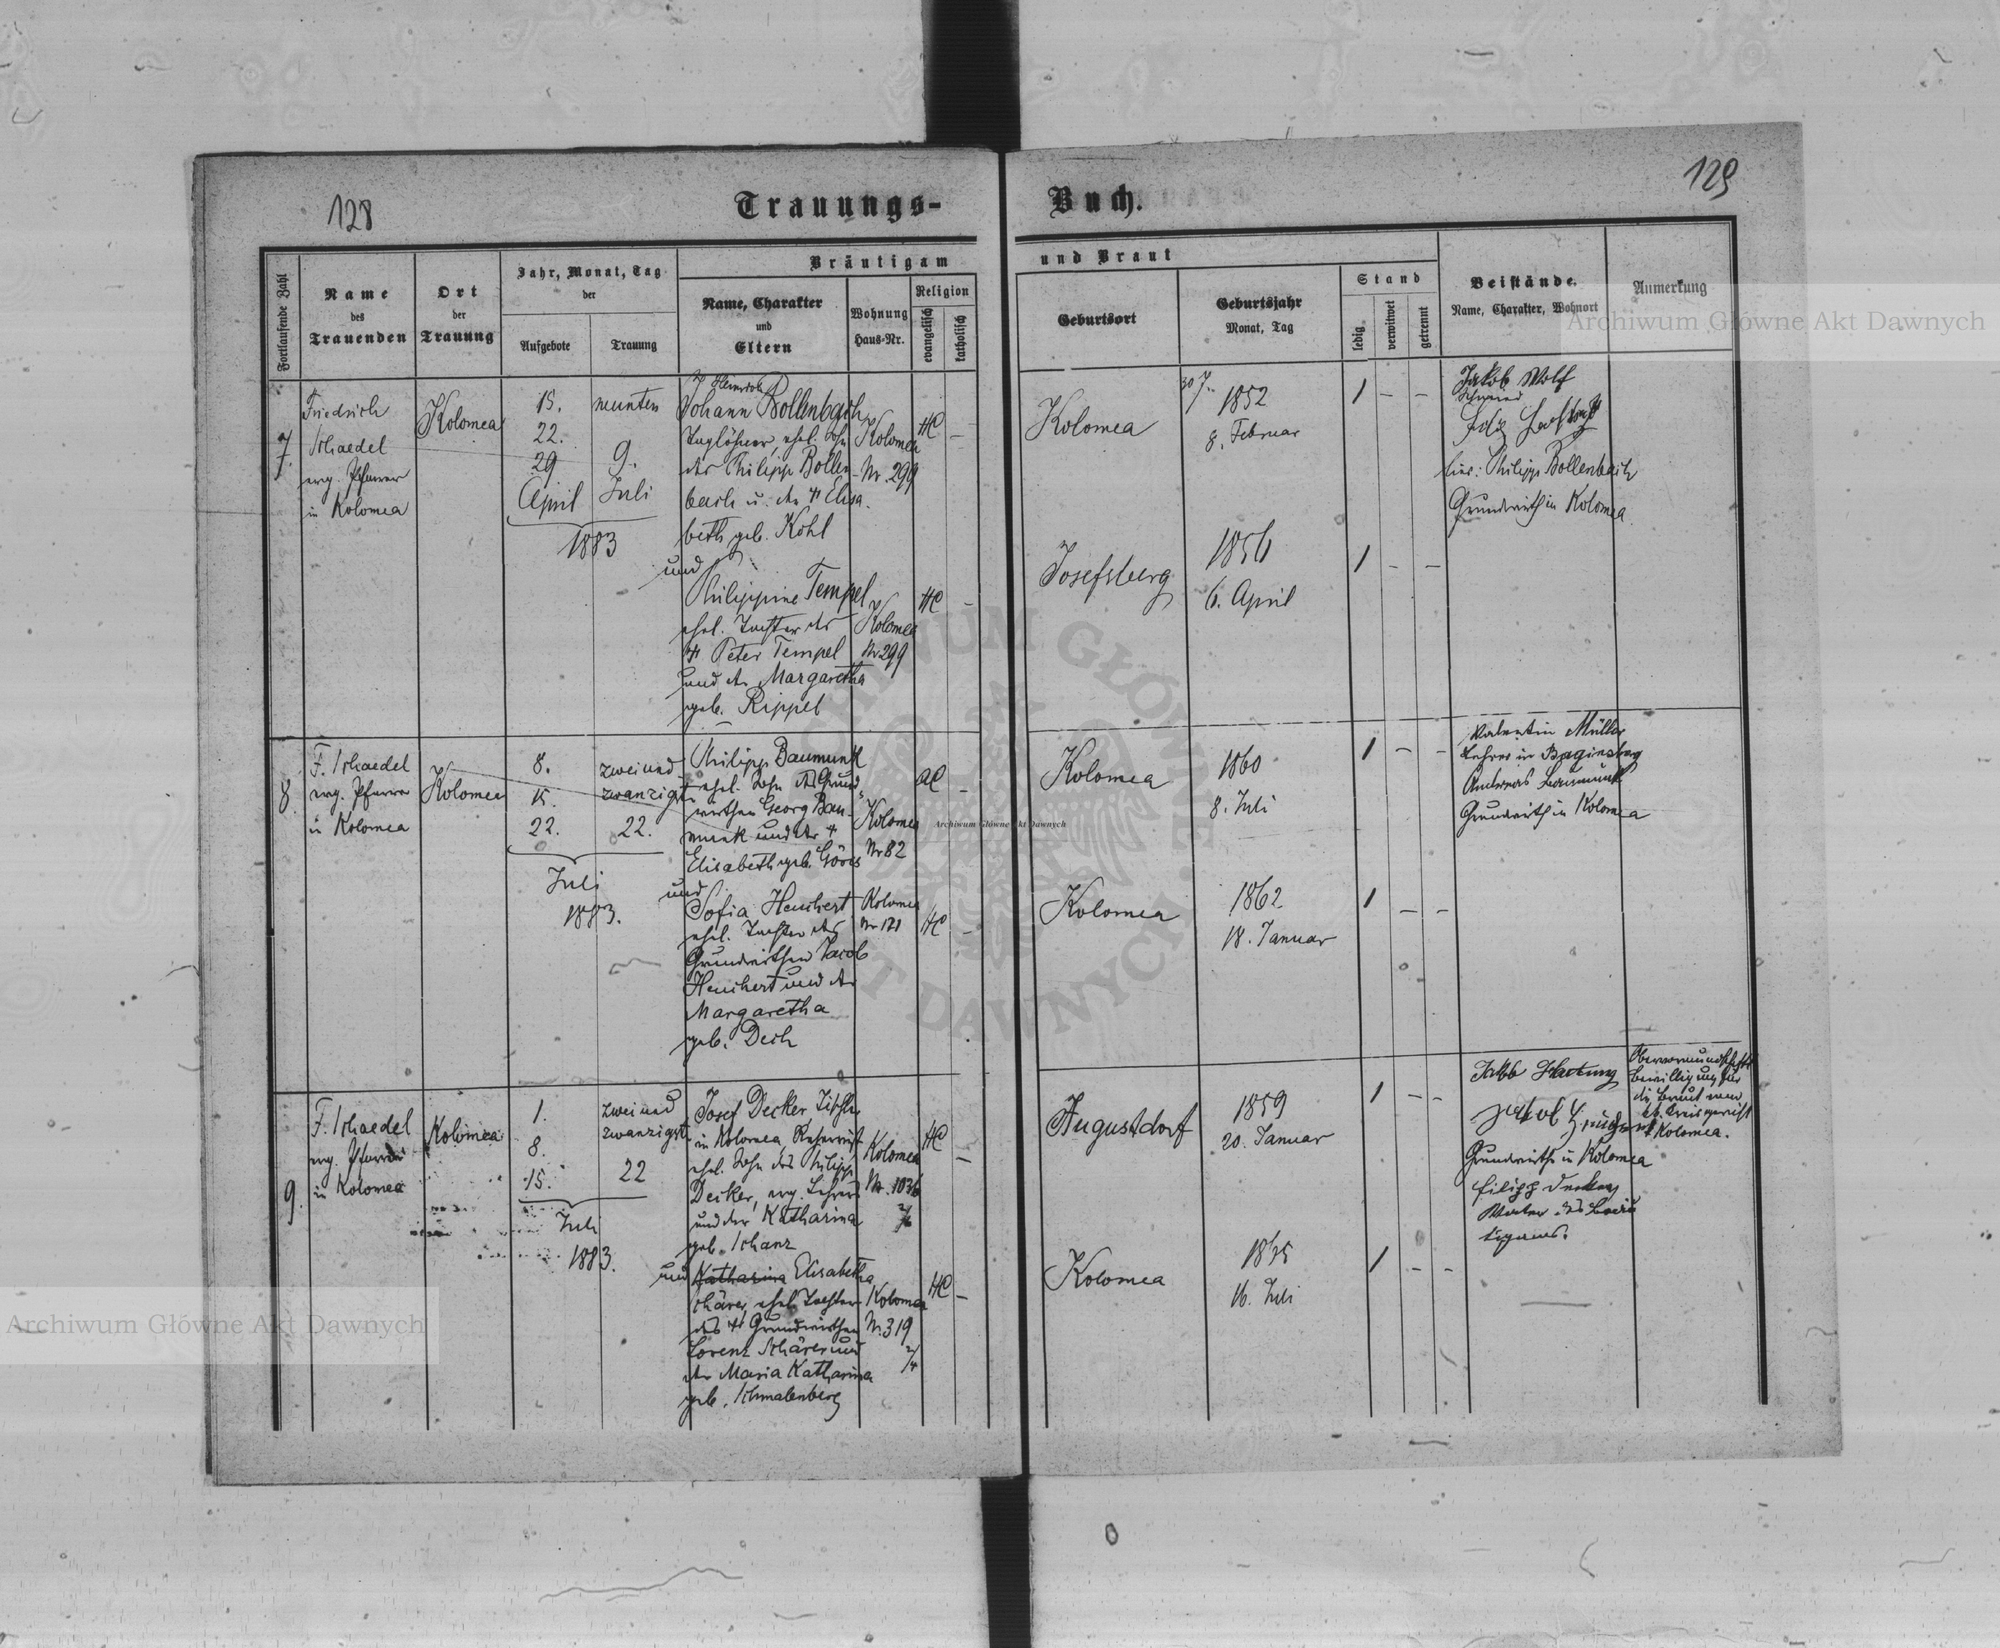 128
Trauungs-
Buch.
129
Fortlaufende Zahl
Name
des
Trauenden
Ort
der
Trauung
Jahr, Monat, Tag
der
Aufgebote
Trauung
Bräutigam
Name, Charakter
und
Eltern
Wohnung
Haus-Nr.
Religion
evangelisch
katholisch
und Braut
Geburtsort
Geburtsjahr
Monat, Tag
Stand
ledig
verwitwet
getrennt
Beistände.
Name, Charakter, Wohnort
Anmerkung
7.
Friedrich
Schaedel
evg. Pfarrer
in Kolomea
Kolomea
15.
22.
29
April
neunten
9.
Juli
1883
Heinrich
Johann Bollenbach
Taglöhner, ehel. Sohn
des Philipp Bollen-
bach u. der † Elisa-
beth geb. Kohl
und
Philippine Tempel
ehel. Tochter des
† Peter Tempel
und der Margaretha
geb. Rippel
Kolomea
Nr. 299
HC
–
Kolomea
Nr 299
HC
–
Kolomea
1852
8. Februar
1 – –
Josefsberg
1856
6. April
1 – –
Jakob Wolf
Schmied
für: Philipp Bollenbach
Grundwirth in Kolomea
8.
F. Schaedel
evg. Pfarrer
in Kolomea
Kolomea
8.
15.
22.
zwei und
zwanzigst
22.
Juli
1883.
Philipp Baumunk
ehel. Sohn des Grund-
wirthen Georg Bau-
munk und der †
Elisabeth geb. Göres
und
Sofia Henchert
ehel. Tochter des
Grundwirthen Jacob
Henchert und der
Margaretha
geb. Dech
Kolomea
Nr 82
AC
–
Kolomea
Nr 121
HC
–
Kolomea
1860
8. Juli
1 – –
Kolomea
1862
18. Januar
1 – –
Valentin Müller
Lehrer in Baginsberg
Andreas Baumunk
Grundwirth in Kolomea
9.
F. Schaedel
evg. Pfarrer
in Kolomea
Kolomea
1.
8.
15.
zwei und
zwanzigst
22
Juli
1883.
Josef Decker Tischler
in Kolomea, Reservist
ehel. Sohn des Philipp
Decker, evg. Lehrers
und der Katharina
geb. Schanz
und Katharina Elisabetha
Schärer, ehel. Tochter
des † Grundwirthen
Lorenz Schärer und
der Maria Katharina
geb. Schmalenberg
Kolomea
Nr. 1036
HC
–
Kolomea
Nr. 319
2/4
HC
–
Augustdorf
1859
20. Januar
1 – –
Kolomea
1865
16. Juli
1 – –
Jakob Hartung
Jakob
Grundwirthe in Kolomea
Filipp Decker
Vater des Bräu
tigams.
Obervormundschaftl.
Bewilligung für
die Braut vom
kk. Kreisgericht
Kolomea.
Archiwum Główne Akt Dawnych
Archiwum Główne Akt Dawnych
Archiwum Główne Akt Dawnych
ARCHIWUM GŁÓWNE AKT DAWNYCH